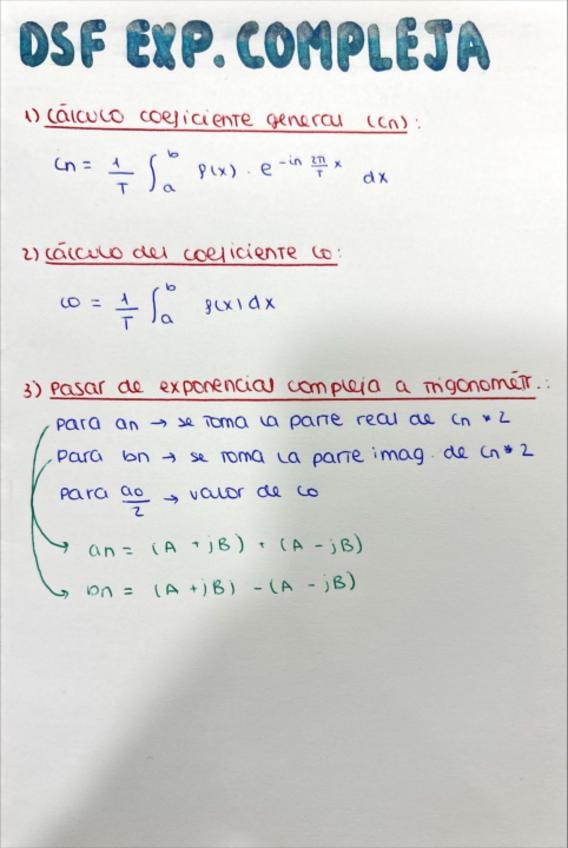 DSF EXP. COMPLEJA
1) Cálculo coeficiente general (Cn):
Cn = 1/T ∫_a^b f(x) · e^(-in 2π/T x) dx
2) Cálculo del coeficiente C0:
C0 = 1/T ∫_a^b f(x) dx
3) Pasar de exponencial compleja a trigonométr.:
Para an → se toma la parte real de Cn * 2
Para bn → se toma la parte imag. de Cn * 2
Para a0/2 → valor de C0
an = (A + jB) + (A - jB)
bn = (A + jB) - (A - jB)